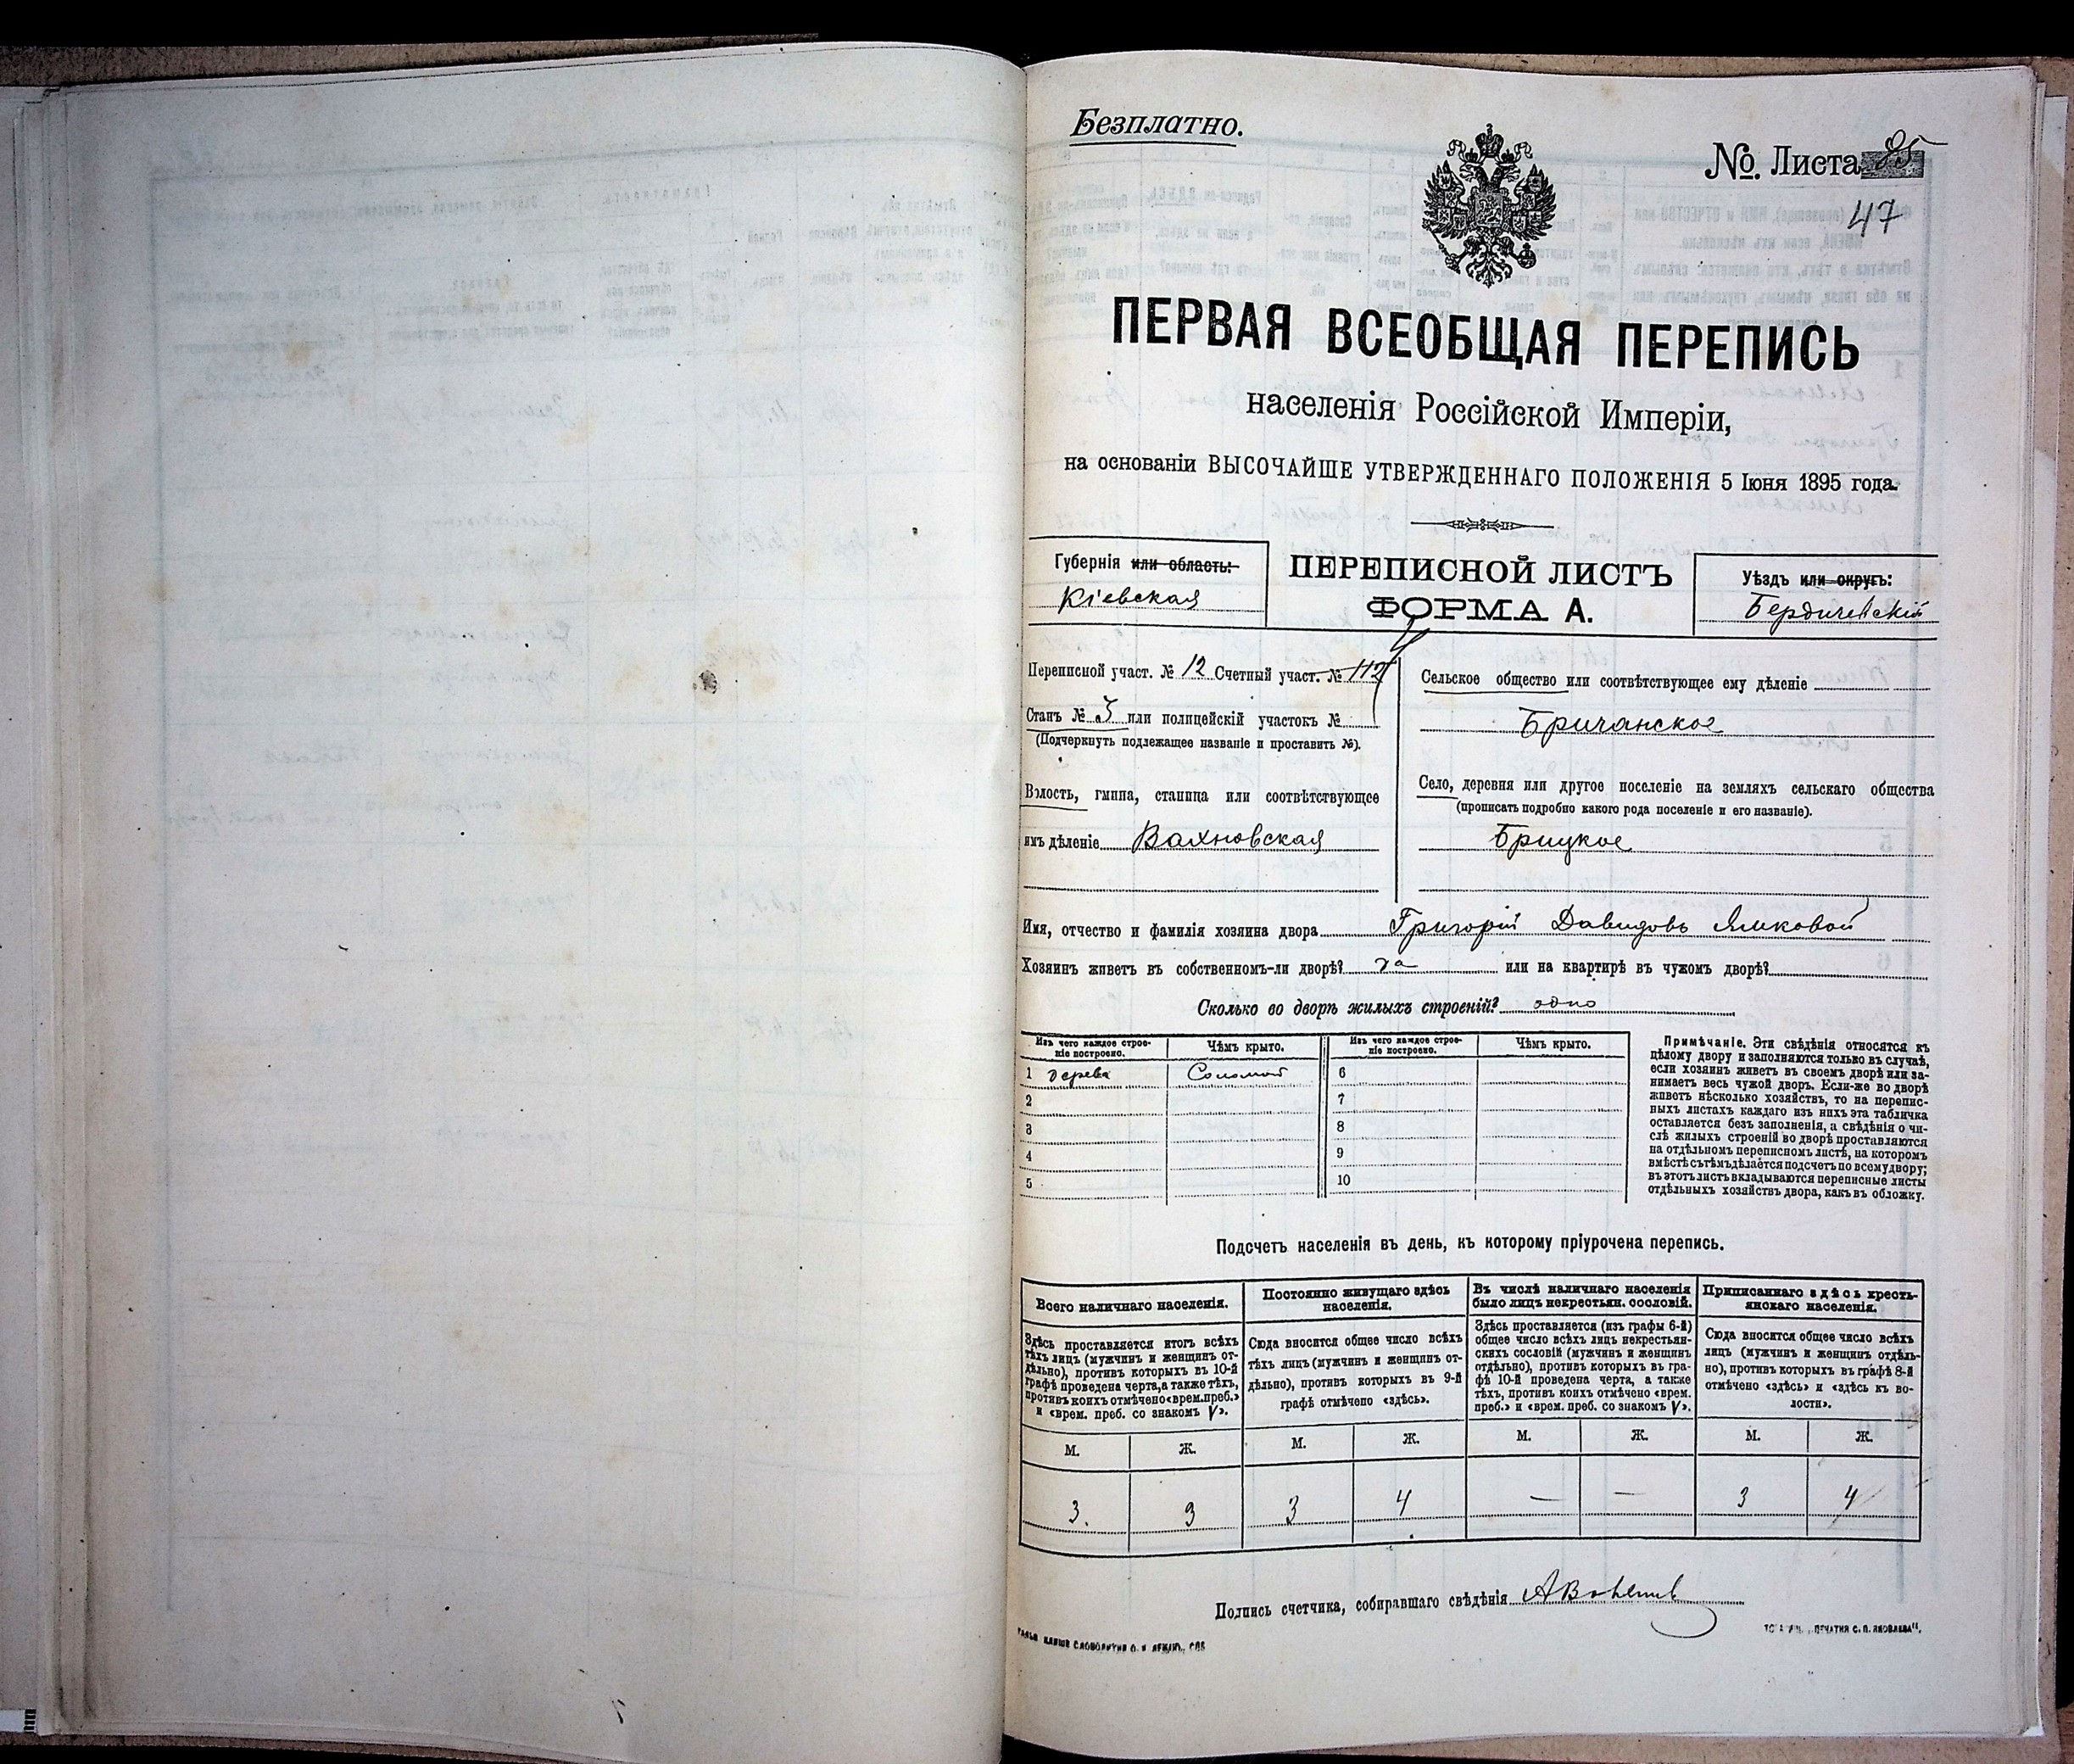 Безплатно.
№. Листа 85
47
ПЕРВАЯ ВСЕОБЩАЯ ПЕРЕПИСЬ
населенія Россійской Имперіи,
на основаніи ВЫСОЧАЙШЕ УТВЕРЖДЕННАГО ПОЛОЖЕНІЯ 5 Іюня 1895 года.
Губернія или область:
Кіевская
ПЕРЕПИСНОЙ ЛИСТЪ
ФОРМА А.
Уѣздъ или округъ:
Бердичевскій
Переписной участ. № 12 Счетный участ. № 112
Станъ № 3 или полицейскій участокъ №
(Подчеркнуть подлежащее названіе и проставить №).
Волость, гмина, станица или соотвѣтствующее
имъ дѣленіе Вахновская
Сельское общество или соотвѣтствующее ему дѣленіе
Бричанское
Село, деревня или другое поселеніе на земляхъ сельскаго общества
(прописать подробно какого рода поселеніе и его названіе).
Брицкое
Имя, отчество и фамилія хозяина двора Григорій Давидовъ Ямковой
Хозяинъ живетъ въ собственномъ-ли дворѣ? да или на квартирѣ въ чужомъ дворѣ?
Сколько во дворѣ жилыхъ строеній? одно
Изъ чего каждое строе-
ніе построено.
Чѣмъ крыто.
Изъ чего каждое строе-
ніе построено.
Чѣмъ крыто.
1 дерева Соломой 6
2 7
3 8
4 9
5 10
Примѣчаніе. Эти свѣдѣнія относятся къ
цѣлому двору и заполняются только въ случаѣ,
если хозяинъ живетъ въ своемъ дворѣ или за-
нимаетъ весь чужой дворъ. Если-же во дворѣ
живетъ нѣсколько хозяйствъ, то на перепис-
ныхъ листахъ каждаго изъ нихъ эта табличка
оставляется безъ заполненія, а свѣдѣнія о чи-
слѣ жилыхъ строеній во дворѣ проставляются
на отдѣльномъ переписномъ листѣ, на которомъ
вмѣстѣ съ тѣмъ дѣлается подсчетъ по всему двору;
въ этотъ листъ вкладываются переписные листы
отдѣльныхъ хозяйствъ двора, какъ въ обложку.
Подсчетъ населенія въ день, къ которому пріурочена перепись.
Всего наличнаго населенія.
Здѣсь проставляется итогъ всѣхъ
тѣхъ лицъ (мужчинъ и женщинъ от-
дѣльно), противъ которыхъ въ 10-й
графѣ проведена черта, а также тѣхъ,
противъ коихъ отмѣчено «врем. преб.»
и «врем. преб. со знакомъ V».
Постоянно живущаго здѣсь
населенія.
Сюда вносится общее число всѣхъ
тѣхъ лицъ (мужчинъ и женщинъ от-
дѣльно), противъ которыхъ въ 9-й
графѣ отмѣчено «здѣсь».
Въ числѣ наличнаго населенія
было лицъ некрестьян. сословій.
Здѣсь проставляется (изъ графы 6-й)
общее число всѣхъ лицъ некрестьян-
скихъ сословій (мужчинъ и женщинъ
отдѣльно), противъ которыхъ въ гра-
фѣ 10-й проведена черта, а также
тѣхъ, противъ коихъ отмѣчено «врем.
преб.» и «врем. преб. со знакомъ V».
Приписаннаго здѣсь кресть-
янскаго населенія.
Сюда вносится общее число всѣхъ
лицъ (мужчинъ и женщинъ отдѣль-
но), противъ которыхъ въ графѣ 8-й
отмѣчено «здѣсь» и «здѣсь къ во-
лости».
М. Ж. М. Ж. М. Ж. М. Ж.
3. 3 3 4 — — 3 4
Подпись счетчика, собиравшаго свѣдѣнія
ПЕЧАТНЯ С. П. ЯКОВЛЕВА".